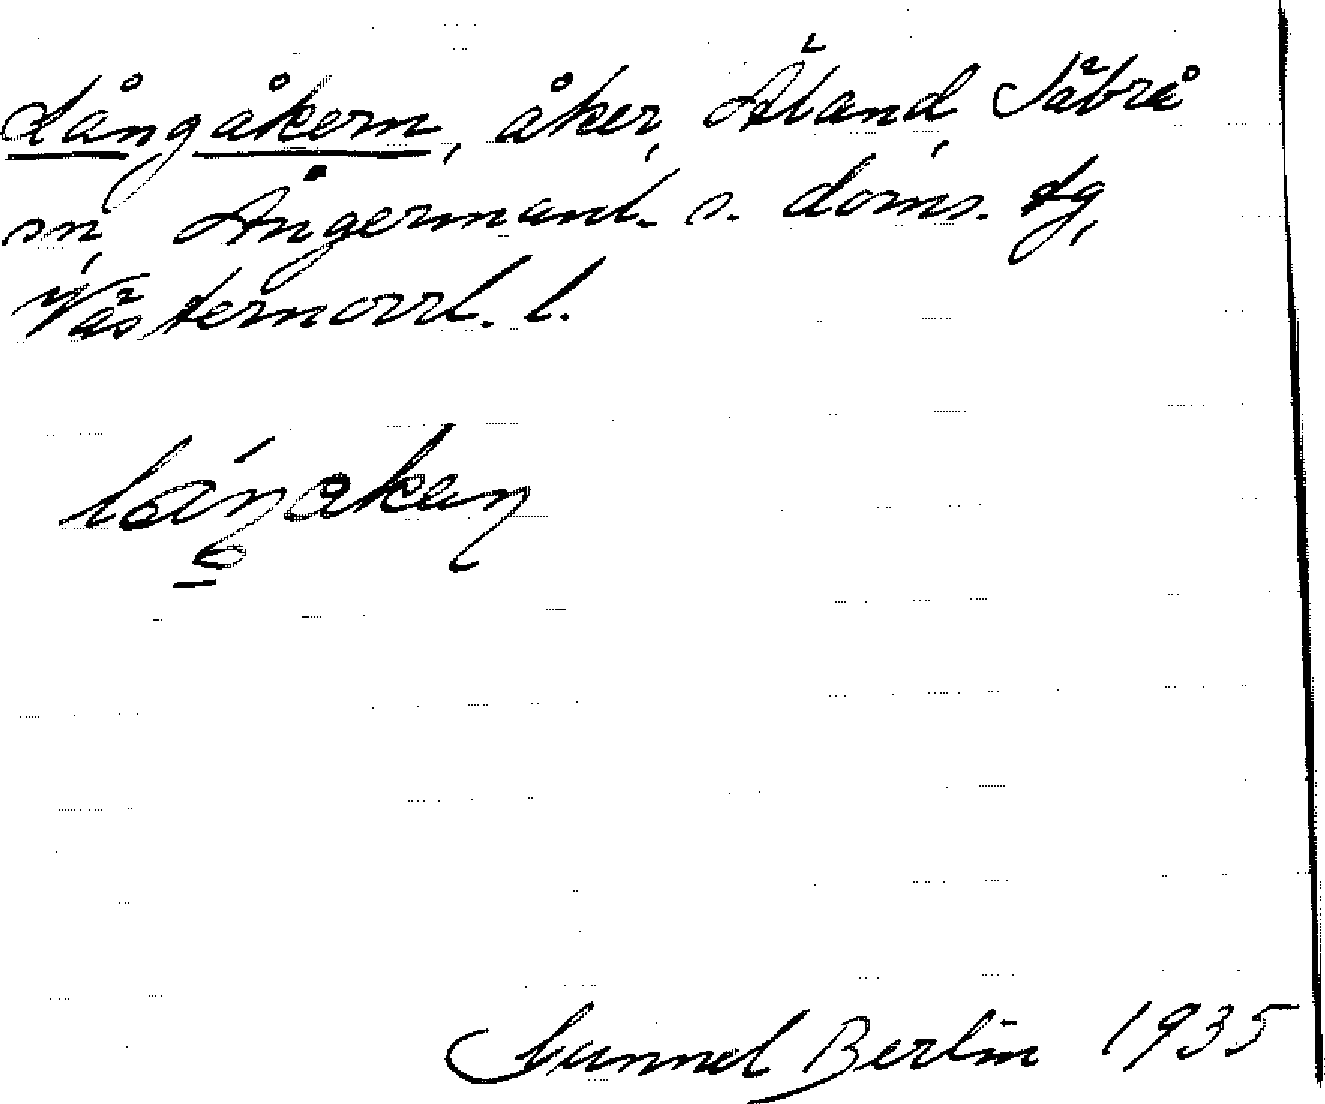 Långåkern, åker, Äland, Säbrå
sn, Ångermanl. s. doms. tg,
Västernorrl. l.
Gunnel Berlin 1935